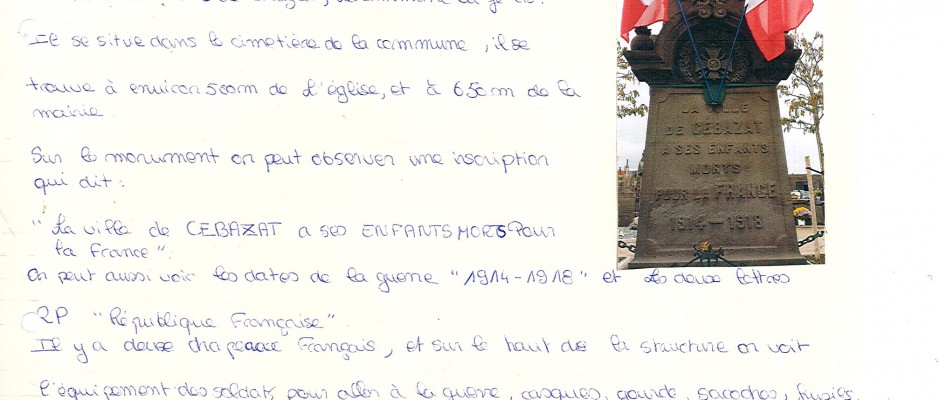 Il se situe dans le cimetière de la commune, il se
trouve à environ 500m de l'église, et à 650m de la
mairie
Sur le monument on peut observer une inscription
qui dit :
"La ville de CEBAZAT a ses ENFANTS MORTS Pour
la France".
On peut aussi voir les dates de la guerre "1914-1918" et les deux lettres
RP "République Française".
Il y a deux drapeaux Français, et sur le haut de la structure on voit
l'équipement des soldats pour aller à la guerre, casques, gourde, sacoches, fusies.
LA VILLE
DE CÉBAZAT
A SES ENFANTS
MORTS
POUR LA FRANCE
1914-1918